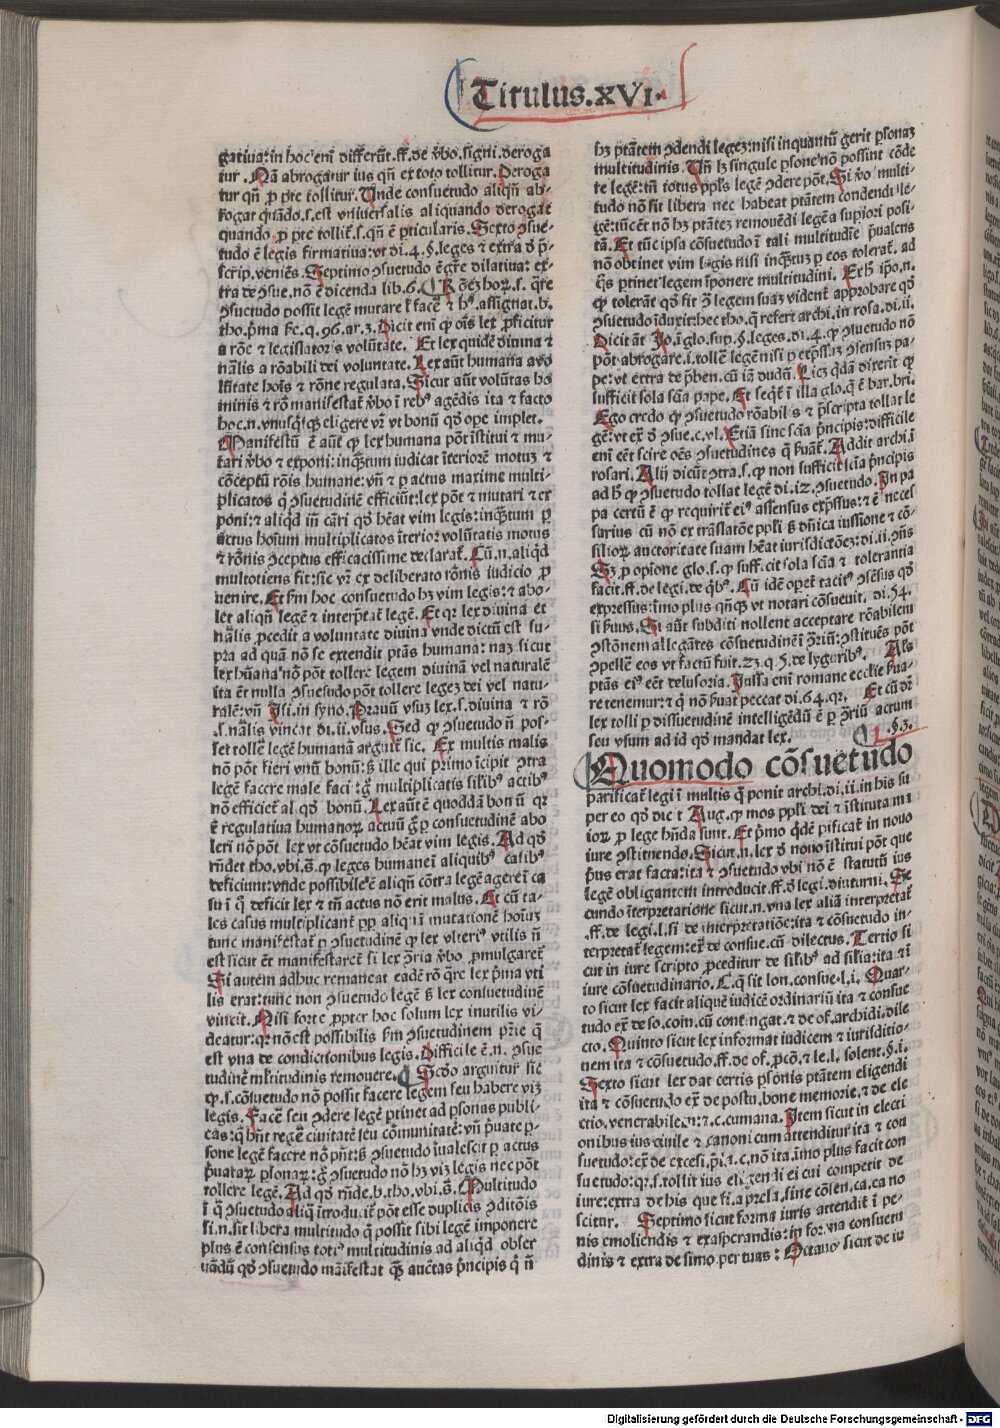 Titulus.XVI.
gatiua: in hoc em̄ differūt. ff. de v̄bo. signi. deroga
tur. Nā abrogatur ius qn̄ ex toto tollitur. Deroga
tur qn̄ ꝓ p̄te tollitur. Unde consuetudo aliqn̄ ab-
rogat quādo. s. est vniuersalis aliquando derogat
quando ꝓ p̄te tollit. s. qn̄ ē p̄ticularis. Sexto ꝯsue-
tudo ē legis firmatiua: vt di. 4. §. leges ⁊ extra d̄ p̄-
scrip. veniēs. Septimo ꝯsuetudo ē gr̄e dilatiua: ex-
tra de ꝯsue. nō ē dicenda lib. 6.
ꝯsuetudo possit legē mutare
tho. p̄ma sc̄e. q. 96. ar. 3. Dicit em̄ ꝙ oīs lex ꝓficitur
a rōe ⁊ legislatoris volūtate. Et lex quidē diuina ⁊
nālis a rōabili dei voluntate. Lex aūt humana a vo
lūtate hoīs ⁊ rōne regulata. Sicut aūt volūtas ho
minis ⁊ rō manifestāt v̄bo ī reb⁹ agēdis ita ⁊ facto
hoc. n. vnusq̄sq̄ eligere vr̄ vt bonū qd̓ ope implet.
Manifestū ē aūt ꝙ lex humana pōt īstitui ⁊ mu-
tari v̄bo ⁊ exponi: inq̄ntum iudicat īteriorē motuz ⁊
cōceptū rōis humane: vn̄ ⁊ ꝑ actus maxime multi-
plicatos q̇ ꝯsuetudinē efficiūt: lex pōt ⁊ mutari ⁊ ex
poni: ⁊ aliqd̄ im̄ cāri qd̓ hēat vim legis: inq̄ntum ꝑ
actus hoīum multiplicatos īterior volūtatis motus
⁊ rōnis ꝯceptus efficacissime declarat̄. Cū. n. aliqd̄
multotiens fit: sic vr̄ ex deliberato rōnis iudicio ꝓ
uenire. Et s̄m hoc consuetudo hꝫ vim legis: ⁊ abo-
let aliqn̄ legē ⁊ interp̄tat̄ legē. Et qr lex diuina et
nālis ꝓcedit a voluntate diuina vnde dictū est su-
pra ad quā nō se extendit ptās humana: naꝫ sicut
lex hūana nō pōt tollere legem diuinā vel naturalē
ita ēt nulla ꝯsuetudo pōt tollere legez dei vel natu-
ralē: vn̄ Isi. in syno. Prauū vsuꝫ lex. s. diuina ⁊ rō
.s. nālis vincat di. ii. vsus. Sed ꝙ ꝯsuetudo n̄ pos-
set tollē legē humanā arguit̄ sic. Ex multis malis
nō pōt fieri vnū bonū: ꝫ ille qui primo īcipit ꝯtra
legē facere male faci: ḡ multiplicatis silib⁹ actib⁹
nō efficiet̄ al qd̓ bonū. Lex aūt ē quoddā bonū qr
ē regulatiua humanoꝝ actuū ḡ ꝑ consuetudinē abo
leri nō pōt lex vt cōsuetudo hēat vim legis. Ad qd̓
rn̄det tho. vbi. s̄. ꝙ leges humane ī aliquib⁹ casib⁹
deficiunt: vnde possibile ē aliqn̄ cōtra legē agere ī ca
su ī q̇ deficit lex ⁊ tn̄ actus nō erit malus. Et cū ta-
les casus multiplicant̄ ꝓp̄ aliquā mutationē hoīuꝫ
tunc manifestat̄ ꝑ ꝯsuetudinē ꝙ lex vlteri⁹ vtilis n̄
est sicut ēt manifestaret̄ si lex ꝯria v̄bo ꝓmulgaret̄
Si autem adhuc remaneat eadē rō q̄re lex p̄ma vti
lis erat: tunc non ꝯsuetudo legē ꝫ lex consuetudinē
vincit. Nisi forte ꝓpter hoc solum lex inutilis vi-
deatur: qr nō est possibilis s̄m ꝯsuetudinem pr̄ie q̄
est vna de condictionibus legis. Difficile ē. n. ꝯsue
tudinē mltitudinis remouere. Scd̓o arguitur sic
ꝙ. s. cōsuetudo nō possit facere legem seu habere viꝫ
legis. Facē seu ꝯdere legē ptinet ad ꝑsonas publi-
cas: q̄ hn̄t regē ciuitatē seu cōmunitatē: vn̄ p̄uate ꝑ-
sone legē facere nō pn̄t: ꝫ ꝯsuetudo īualescit ꝑ actus
p̄uataꝝ ꝑsonaꝝ: ḡ ꝯsuetudo nō hꝫ viꝫ legis nec pōt
tollere legē. Ad qd̓ rn̄de. b. tho. vbi. s̄. Multitudo
ī q̄ ꝯsuetudo aliq̄ ītroducit̄ pōt esse duplicis ꝯditōis
si. n. sit libera multitudo q̄ possit sibi legē imponere
plus ē consensus toti⁹ multitudinis ad aliqd̄ obser
uādū qd̓ ꝯsuetudo māifestat q̄ꝫ auctas p̄ncipis q̇ n̄
hꝫ ptātem ꝯdendi legeꝫ: nisi inquantū gerit ꝑsonaꝫ
multitudinis. Un̄ lꝫ singule ꝑsone nō possint cōde
re legē: tn̄ totus ppl̄s legē ꝯdere pōt. Si v̄o multi-
tudo nō sit libera nec habeat ptātem condendi le-
gē: tn̄ cēt nō hꝫ ptātez remouēdi legē a supiori posi-
tā. Et tn̄ ē ipsa cōsuetudo ī tali multitudīe p̄ualens
nō obtinet vim legis nisi inq̄ntuꝫ ꝑ eos tolerat̄. ad
q̇s ptinet legem īponere multitudini. Ex h̄ ip̄o. n.
ꝙ tolerāt qd̓ fit ꝯ legem suaꝫ vident̄ approbare qd̓
ꝯsuetudo īduxit: hec tho. q̄ refert archi. in rosa. di. ii.
Dicit āt Jo. ī glo. sup. §. leges. di. 4. ꝙ ꝯsuetudo nō
pōt abrogare. i. tollē legē nisi ꝑ exp̄ssuꝫ ꝯsensuꝫ pa-
pe: vt extra de p̄ben. cū iā dudū. Licꝫ q̄dā dixerit ꝙ
sufficit sola sc̄ia pape. Et seq̄t̄ ī illa glo. q̄ ē bar. bri.
Ego credo ꝙ ꝯsuetudo rōabilis ⁊ p̄scripta tollat le
gē: vt ext̄ d̄ ꝯsue. c. vl. Etiā sine sc̄ia p̄ncipis: difficile
em̄ eēt scire oēs ꝯsuetudines q̄ fuāt̄. Addit archi. ī
rosari. Alij dicūt ꝯtra. s. ꝙ non sufficit sc̄ia p̄ncipis
ad h̄ ꝙ ꝯsuetudo tollat legē di. 12. ꝯsuetudo. In pa
pa certū ē ꝙ requirit̄ ei⁹ assensus exp̄ssus: ⁊ ē neces
sarius cū nō ex trāslatōe ppl̄i ꝫ dn̄ica iussione ⁊ cō-
silioꝝ auctoritate suam hēat iurisdictōeꝫ: di. ii. ꝯn̄s
Sꝫ ꝓ opiōne glo. s. ꝙ sufficit sola sc̄ia ⁊ tolerantia
facit. ff. de legi. de qb⁹. Cū idē opet̄ tacit⁹ ꝯsēsus qd̓
expressus: īmo plus qn̄q̄ vt notari cōsueuit. di. 54.
si seruus. Si aūt subditi nollent acceptare rōabilem
ꝯstōnem allegātes cōsuetudinē ī ꝯriū: ꝯstituēs pōt
ꝯpellē eos vt factū fuit. 23. q. 5. de lyguribus. Als
ptās ei⁹ eēt delusoria. Jussa em̄ romane ecclie serua-
re tenemur: ⁊ q̇ nō seruat peccat di. 64. qr. Et cū dr̄
lex tolli ꝑ dissuetudinē intelligēdū ē ꝑ ꝯriū actum
seu vsum ad id qd̓ mandat lex. .§.3.
Quomodo cōsuetudo
parificat̄ legi ī multis q̄ ponit archi. di. ii. in his su
per eo qd̓ dic t Aug. ꝙ mos ppl̄i dei ⁊ īstituta ma
ioꝝ ꝓ lege hn̄da sunt. Et p̄mo q̄dē pificat̄ in nouo
iure ꝯstituendo. Sicut. n. lex d̄ nouo īstitui pōt que
p̄us erat facta: ita ⁊ ꝯsuetudo vbi nō ē statutū ius
legē obligantem introducit. ff. d̄ legi. diuturni. Se
cundo īterpretatione sicut. n. vna lex aliā interpretat̄
.ff. de legi. l. si de interpretatiōe: ita ⁊ cōsuetudo in-
terpretat̄ legem: ext̄ de consue. cū dilectus. Tertio si
cut in iure scripto ꝓceditur de silib⁹ ad silia: ita ⁊ ī
iure cōsuetudinario. C. q̄ sit lon. consue. l. i. Quar-
to sicut lex facit aliquē iudicē ordinariū ita ⁊ consue
tudo ext̄ de fo. com. cū contingat. ⁊ de of. archidi. dile
cto. Quinto sicut lex informat iudicem ⁊ iurisdictio-
nem ita ⁊ cōsuetudo. ff. de of. ꝓcō. ⁊ le. l. solent. §. i.
Sexto sicut lex dat certis ꝑsonis ptātem eligendi
ita ⁊ cōsuetudo ext̄ de postu. bone memorie. ⁊ de ele
ctio. venerabilem: ⁊. c. cumana. Item sicut in electi
onibus ius ciuile ⁊ canonicum attenditur ita ⁊ con
suetudo: ext̄ de excess. p̄la. c. nō ita. imo plus facit con
suetudo: qr. s. tollit ius eligendi ei cui competit de
iure: extra de his que fi. a prela. sine cōsen. ca. ca no
scitur. Septimo sicut forma iuris attendit̄ ī pe-
nis emoliendis ⁊ exasperandis: in forma consuetu
dinis ⁊ extra de simo. per tuas: Octauo sicut de iu
Digitalisierung gefördert durch die Deutsche Forschungsgemeinschaft - DFG